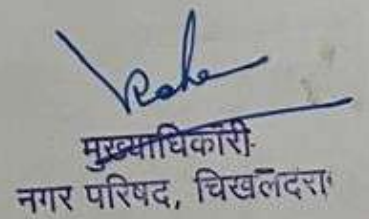 मुख्याधिकारी
नगर परिषद, चिखलदरा